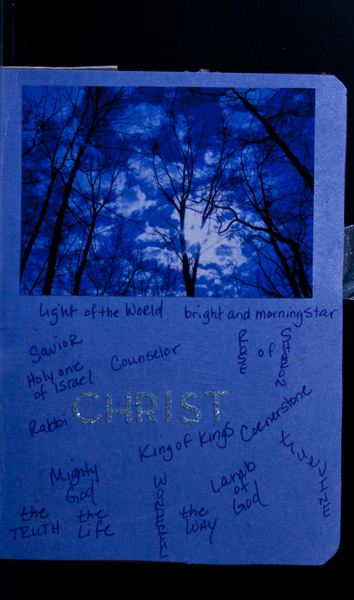 Light of the World bright and morningstar
Savior
Counselor
ROSE
of
SHARON
Holy one
of Israel
Rabbi
CHRIST
King of Kings
Cornerstone
true VINE
Mighty
God
Lamb
of
God
WONDERFUL
the
TRUTH
the
Life
the
WAY